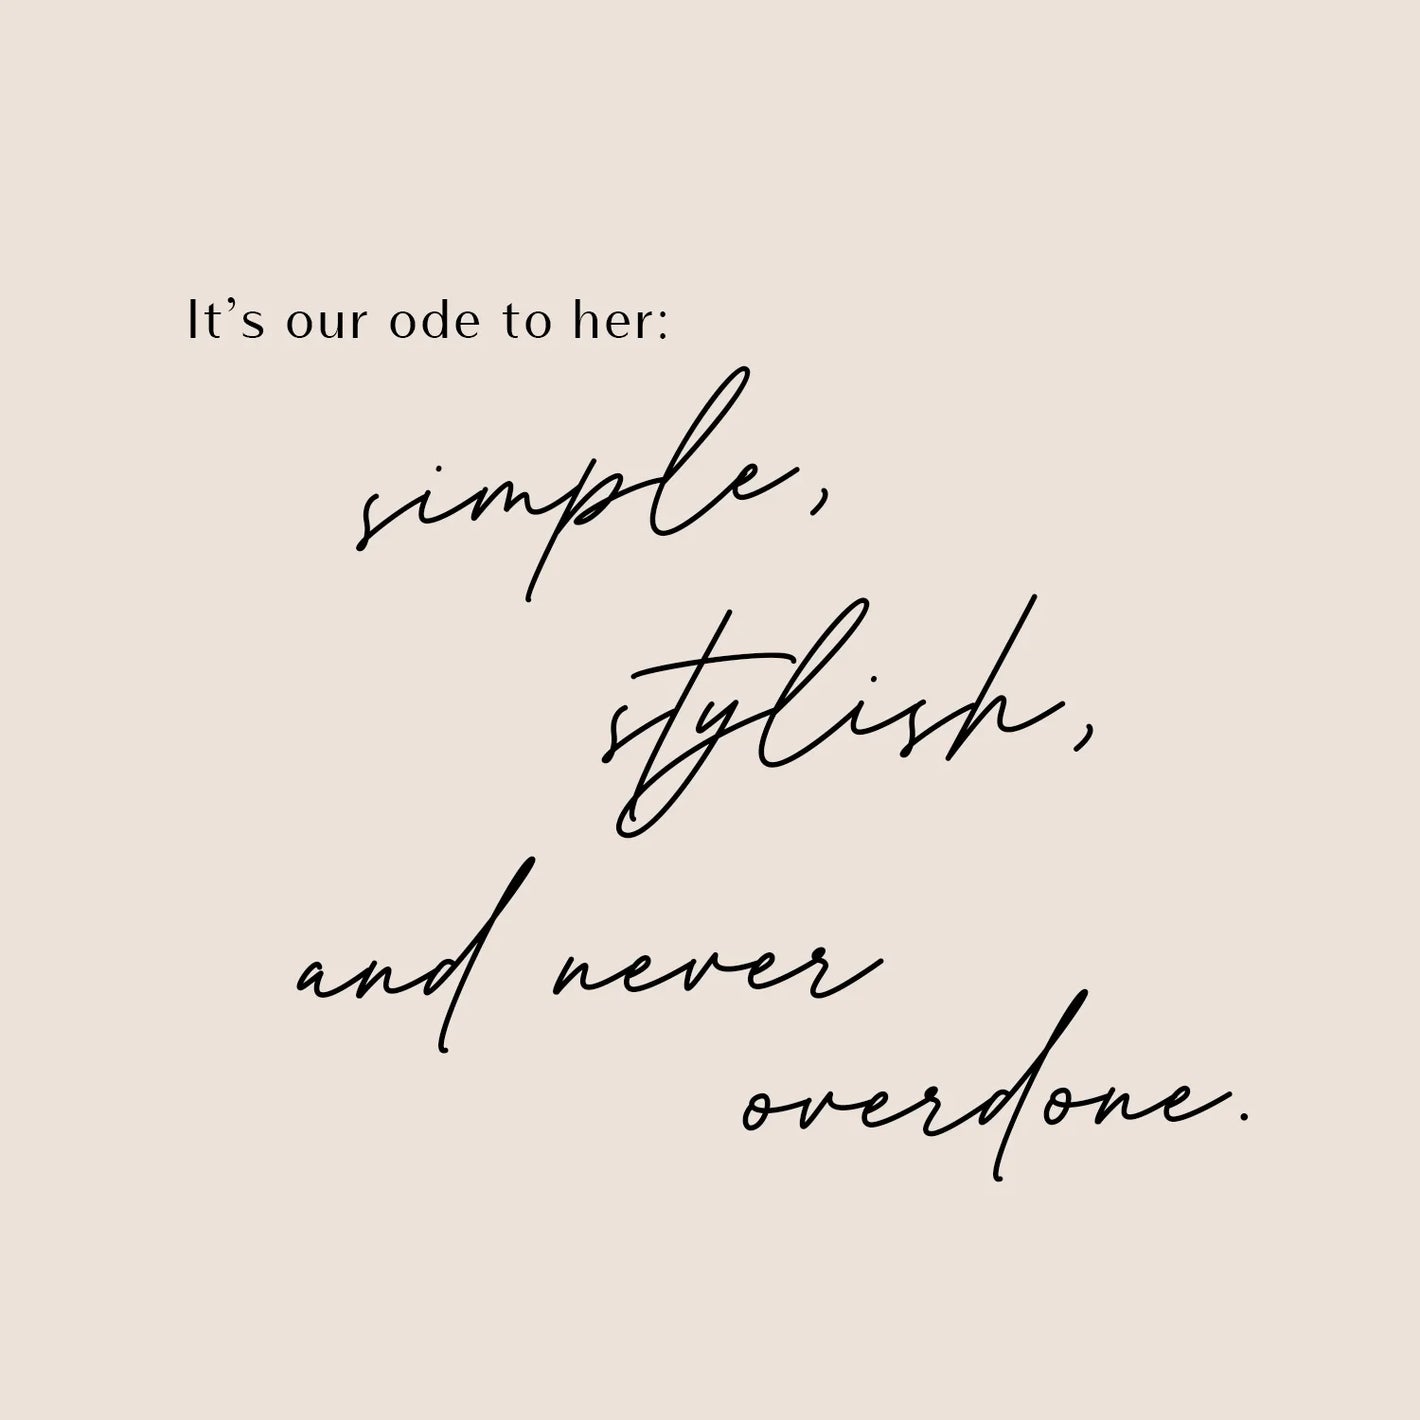 It’s our ode to her:
simple,
stylish,
and never
overdone.